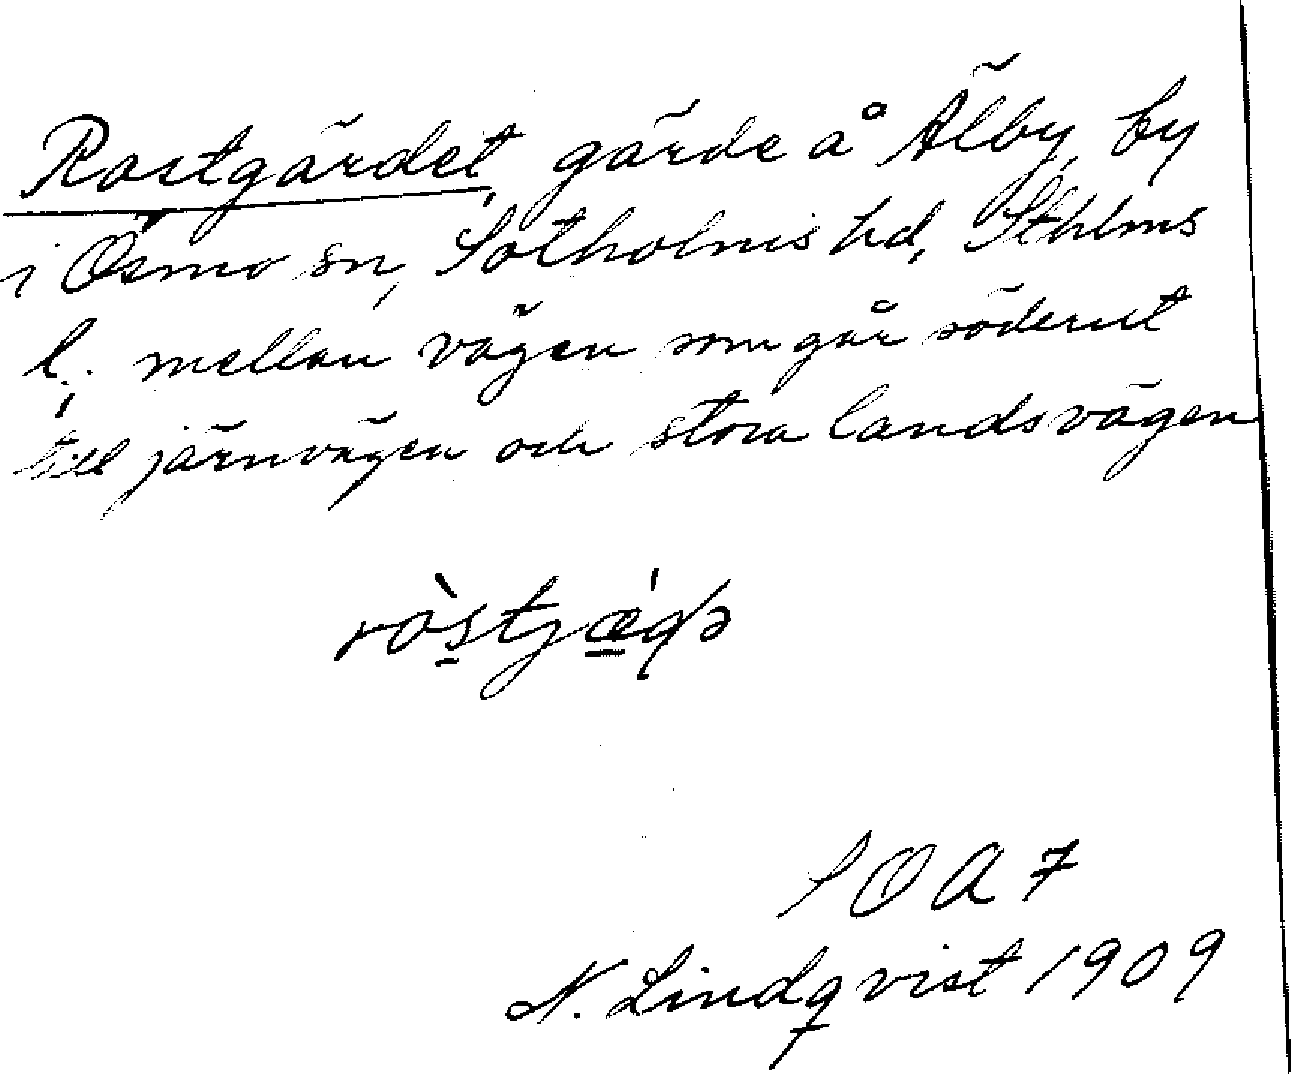 Rastgärdet, gärde å Älby, by
i Ösmo sn, Sotholms hd, Sthlms
l.; mellan vägen som går söderut
till järnvägen och stora landsvägen
SOA 7
N. Lindqvist 1909